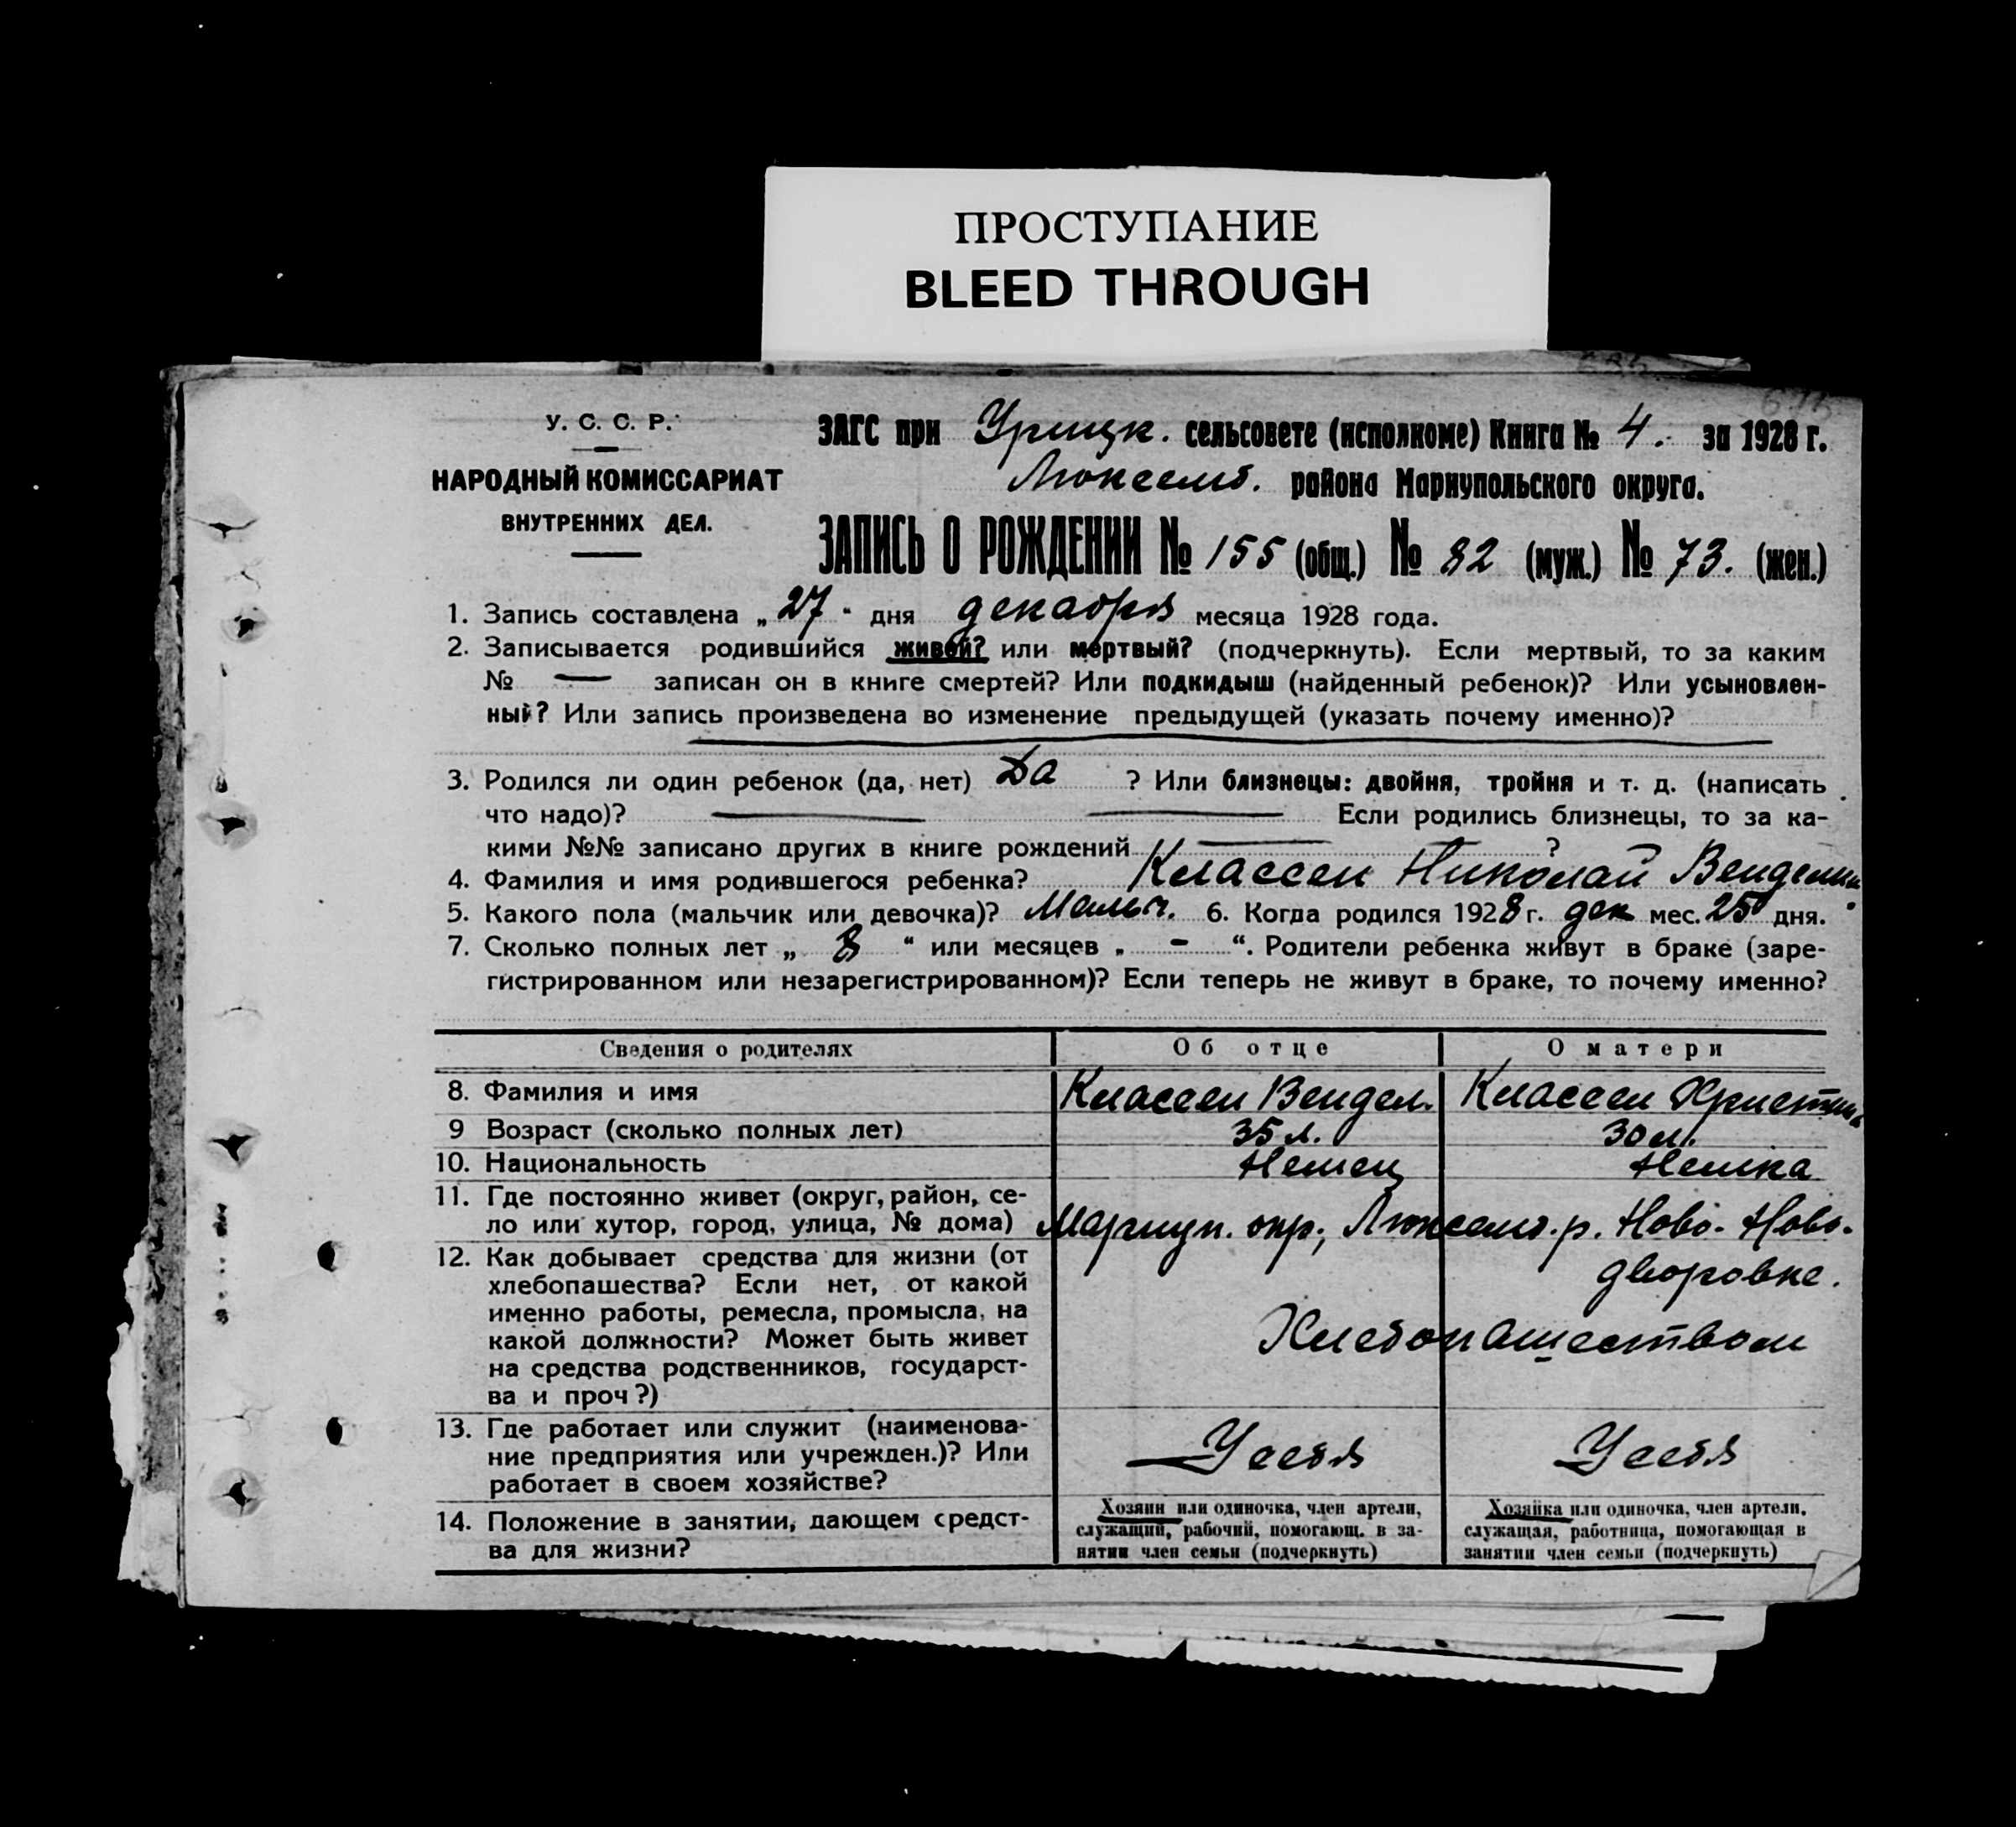 ПРОСТУПАНИЕ
BLEED THROUGH
У. С. С. Р.
НАРОДНЫЙ КОМИССАРИАТ
ВНУТРЕННИХ ДЕЛ.
ЗАГС при Урицк. сельсовете (исполкоме) Книга № 4. за 1928 г.
Люксемб. района Мариупольского округа.
ЗАПИСЬ О РОЖДЕНИИ № 155 (общ.) № 82 (муж.) № 73. (жен.)
1. Запись составлена „27“ дня декабря месяца 1928 года.
2. Записывается родившийся живой? или мертвый? (подчеркнуть). Если мертвый, то за каким
№ — записан он в книге смертей? Или подкидыш (найденный ребенок)? Или усыновлен-
ный? Или запись произведена во изменение предыдущей (указать почему именно)?
3. Родился ли один ребенок (да, нет) Да ? Или близнецы: двойня, тройня и т. д. (написать
что надо)? Если родились близнецы, то за ка-
кими №№ записано других в книге рождений ?
4. Фамилия и имя родившегося ребенка? Классен Николай
5. Какого пола (мальчик или девочка)? Мальч. 6. Когда родился 1928 г. дек мес. 25 дня.
7. Сколько полных лет „ 8 “ или месяцев „ - “. Родители ребенка живут в браке (заре-
гистрированном или незарегистрированном)? Если теперь не живут в браке, то почему именно?
Сведения о родителях Об отце О матери
8. Фамилия и имя Классен Вендел. Классен Христина
9 Возраст (сколько полных лет) 35 л. 30 л.
10. Национальность Немец Немка
11. Где постоянно живет (округ, район, се-
ло или хутор, город, улица, № дома) Мариуп. окр., Люксемб. р. Ново-Ново-
дворовке.
12. Как добывает средства для жизни (от
хлебопашества? Если нет, от какой
именно работы, ремесла, промысла, на
какой должности? Может быть живет
на средства родственников, государст-
ва и проч?)
Хлебопашеством
13. Где работает или служит (наименова-
ние предприятия или учрежден.)? Или
работает в своем хозяйстве?
У себя У себя
14. Положение в занятии, дающем средст-
ва для жизни?
Хозяин или одиночка, член артели,
служащий, рабочий, помогающ. в за-
нятии член семьи (подчеркнуть)
Хозяйка или одиночка, член артели,
служащая, работница, помогающая в
занятии член семьи (подчеркнуть)